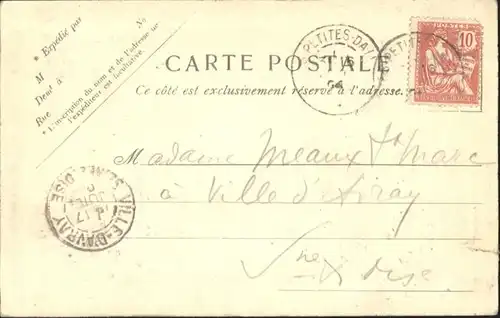 * Expédié par
N°
M
Demt à
Rue
* L'inscription du nom et de l'adresse de
l'expéditeur est facultative.
CARTE POSTALE
Ce côté est exclusivement réservé à l'adresse.
PETITES-DA
PETIT
POSTES
10
Madame Meaux St Marc
à Ville d'Avray
Sne & Oise
VILLE-D'AVRAY
SEINE-ET-OISE